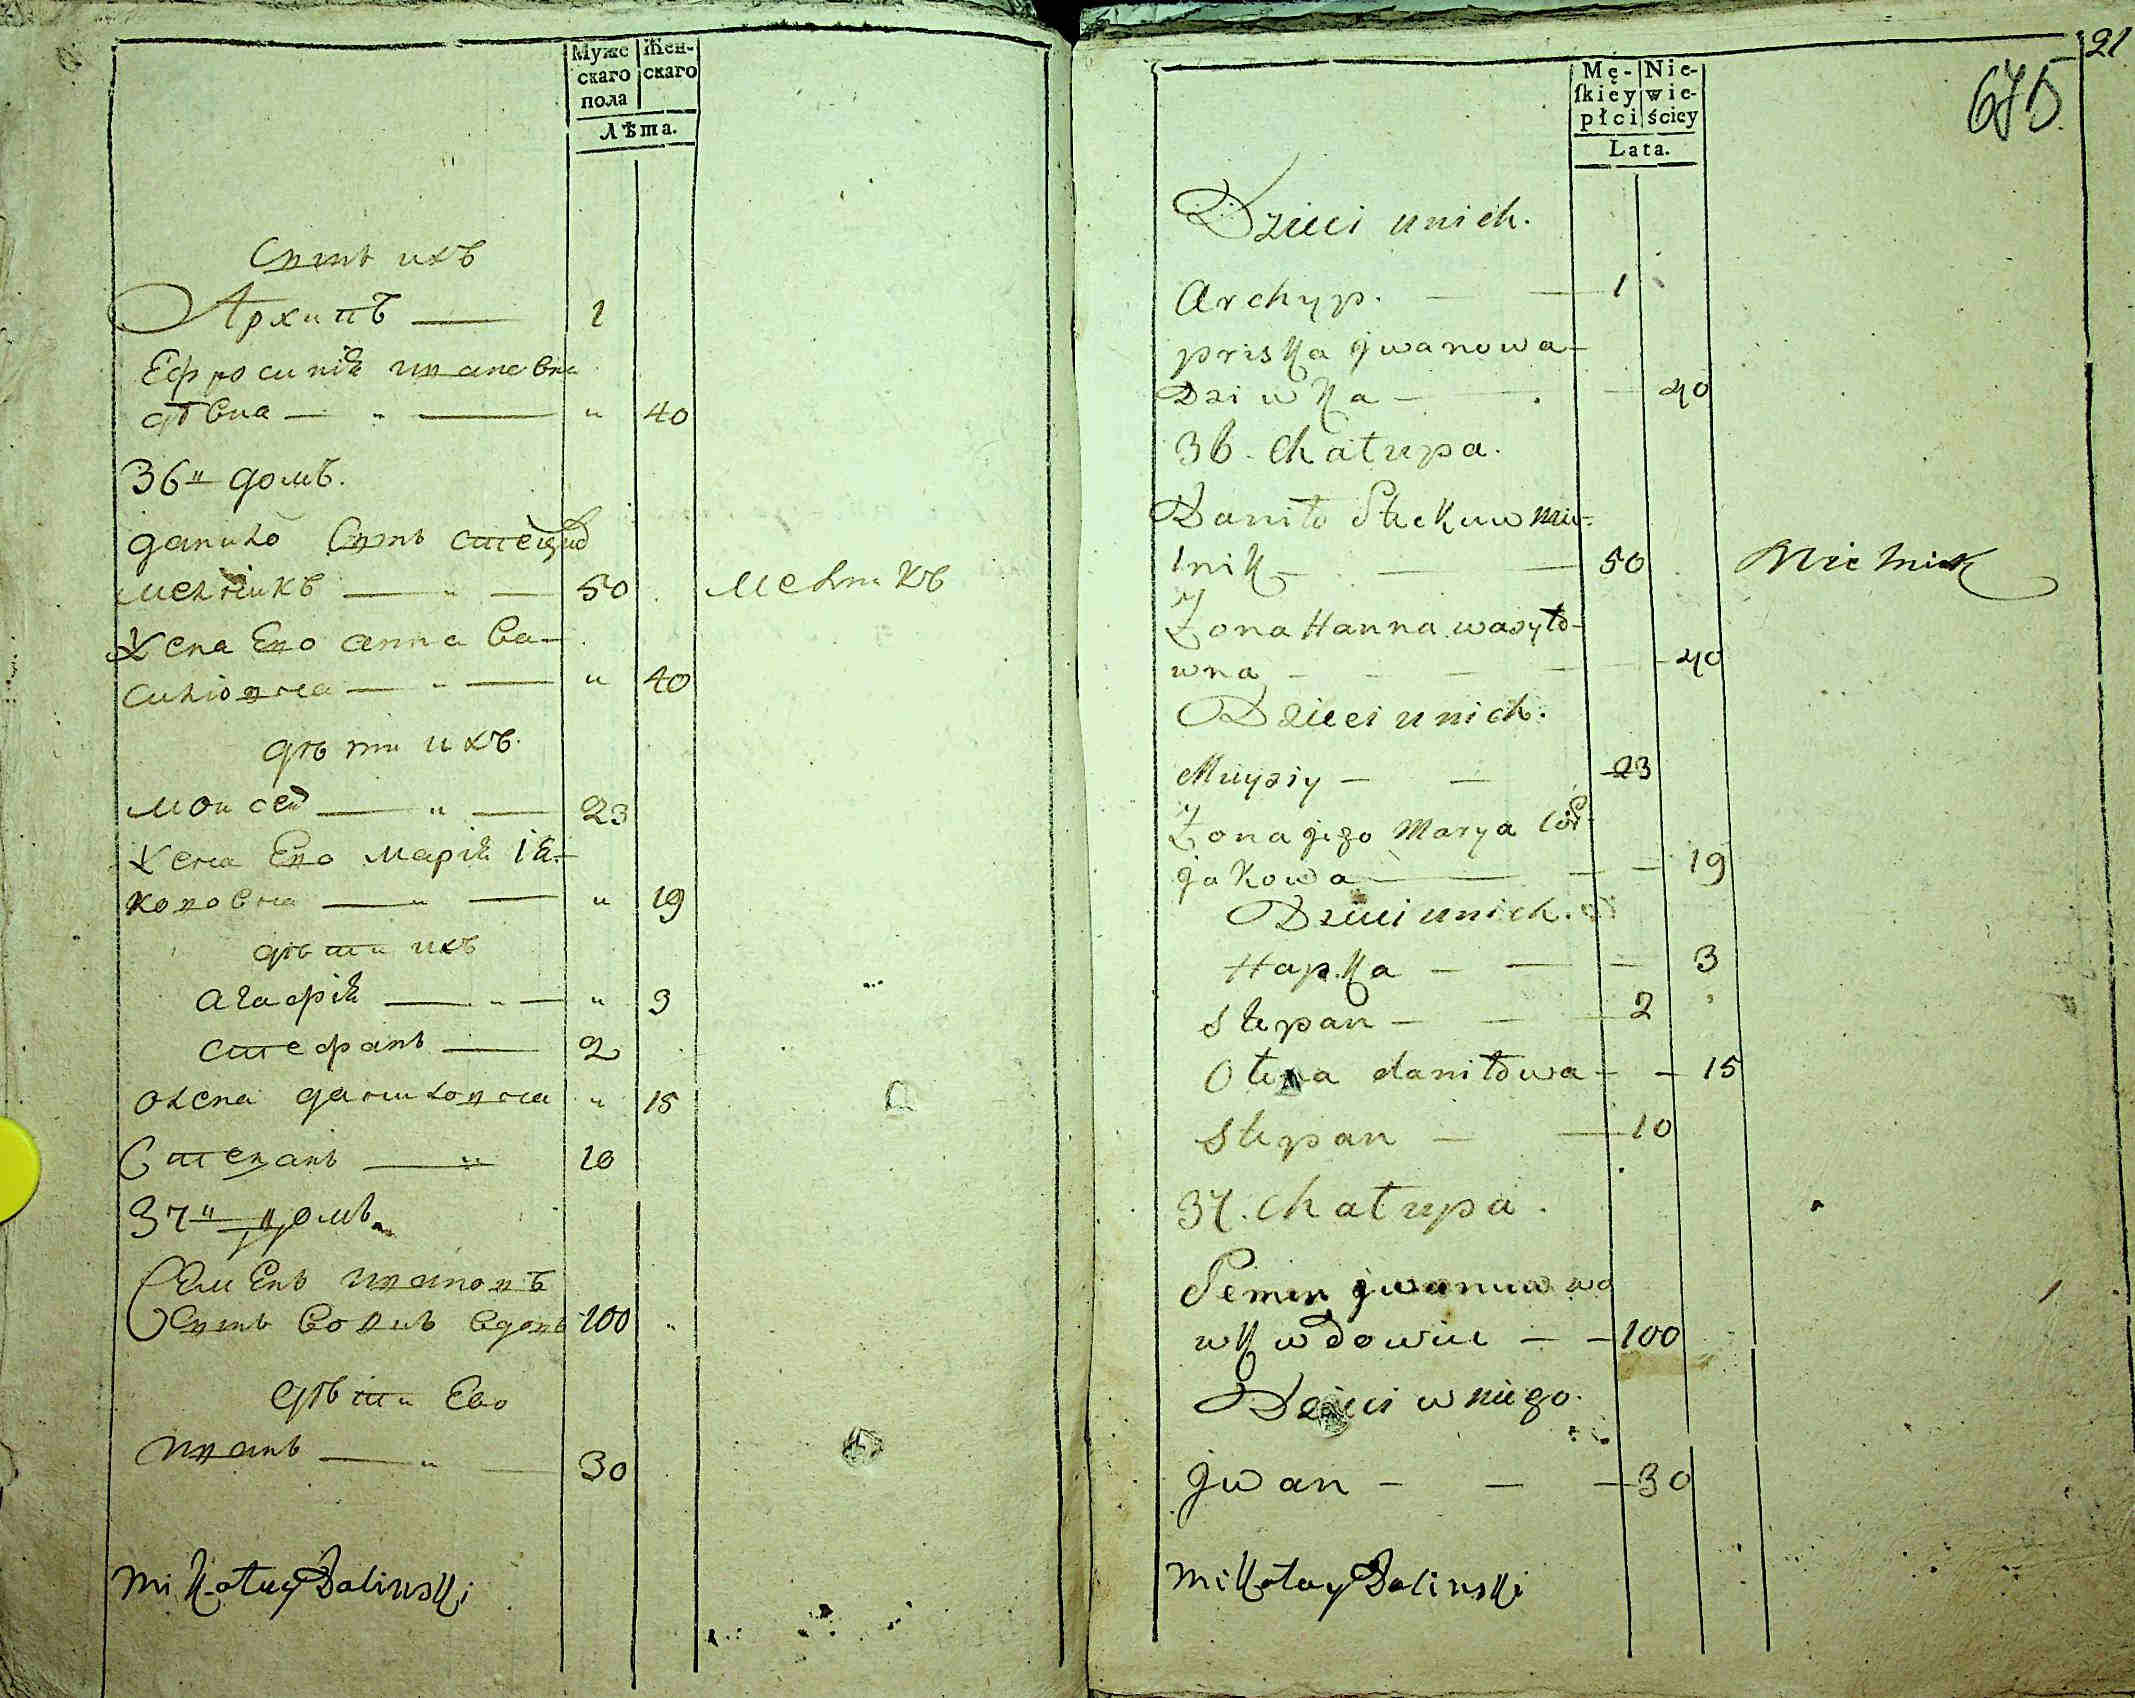 Муже
скаго
пола
Жен-
скаго
Лѣта.
Сынъ ихъ
Архипъ — 1
Ефросинія Ивановна
дѣвка — " — " 40
36" домъ.
данило Сынъ
мельникъ — " — 50 мельникъ
Жена Его анна Ва-
силіовна — " — " 40
дѣти ихъ.
моисей — " — 23
Жена Его марія Іа-
кововна — " — " 19
дѣти ихъ
агафія — " — " 3
стефанъ — 2
олена даниловна " 15
Степанъ — " 10
37" домъ
Семенъ Ивановъ
Сынъ вдовъ 100 "
дѣти Ево
иванъ — " — 30
Mikołay Dolinski
21
675
Mę-
ſkiey
płci
Nie-
wie-
ściey
Lata.
Dzieci unich.
Archyp. — — 1
priska Jwanowa
Dziwka — — — 40
36. Chałupa.
Daniło Stekuw mie-
lnik — — — 50 Mielnik
Żona Hanna wasyło-
wna — — — — 40
Dzieci unich.
Muysiy — — 23
Żona jego Marya Cór
jakowa — — — 19
Dzieci unich.
Hapka — — — 3
Stepan — — 2
Ołena daniłowa — — 15
Stepan — — 10
37. Chałupa.
Semen jwanuw wd
wdowiec — — 100
Dzieci wniego.
Jwan — — — 30
Mikołay Dolinski